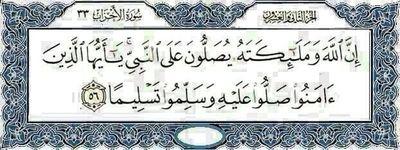 الجزء الثاني والعشرون
سورة الأحزاب ٣٣
إِنَّ ٱللَّهَ وَمَلَٰٓئِكَتَهُۥ يُصَلُّونَ عَلَى ٱلنَّبِىِّ ۚ يَٰٓأَيُّهَا ٱلَّذِينَ
ءَامَنُوا۟ صَلُّوا۟ عَلَيْهِ وَسَلِّمُوا۟ تَسْلِيمًا ٥٦